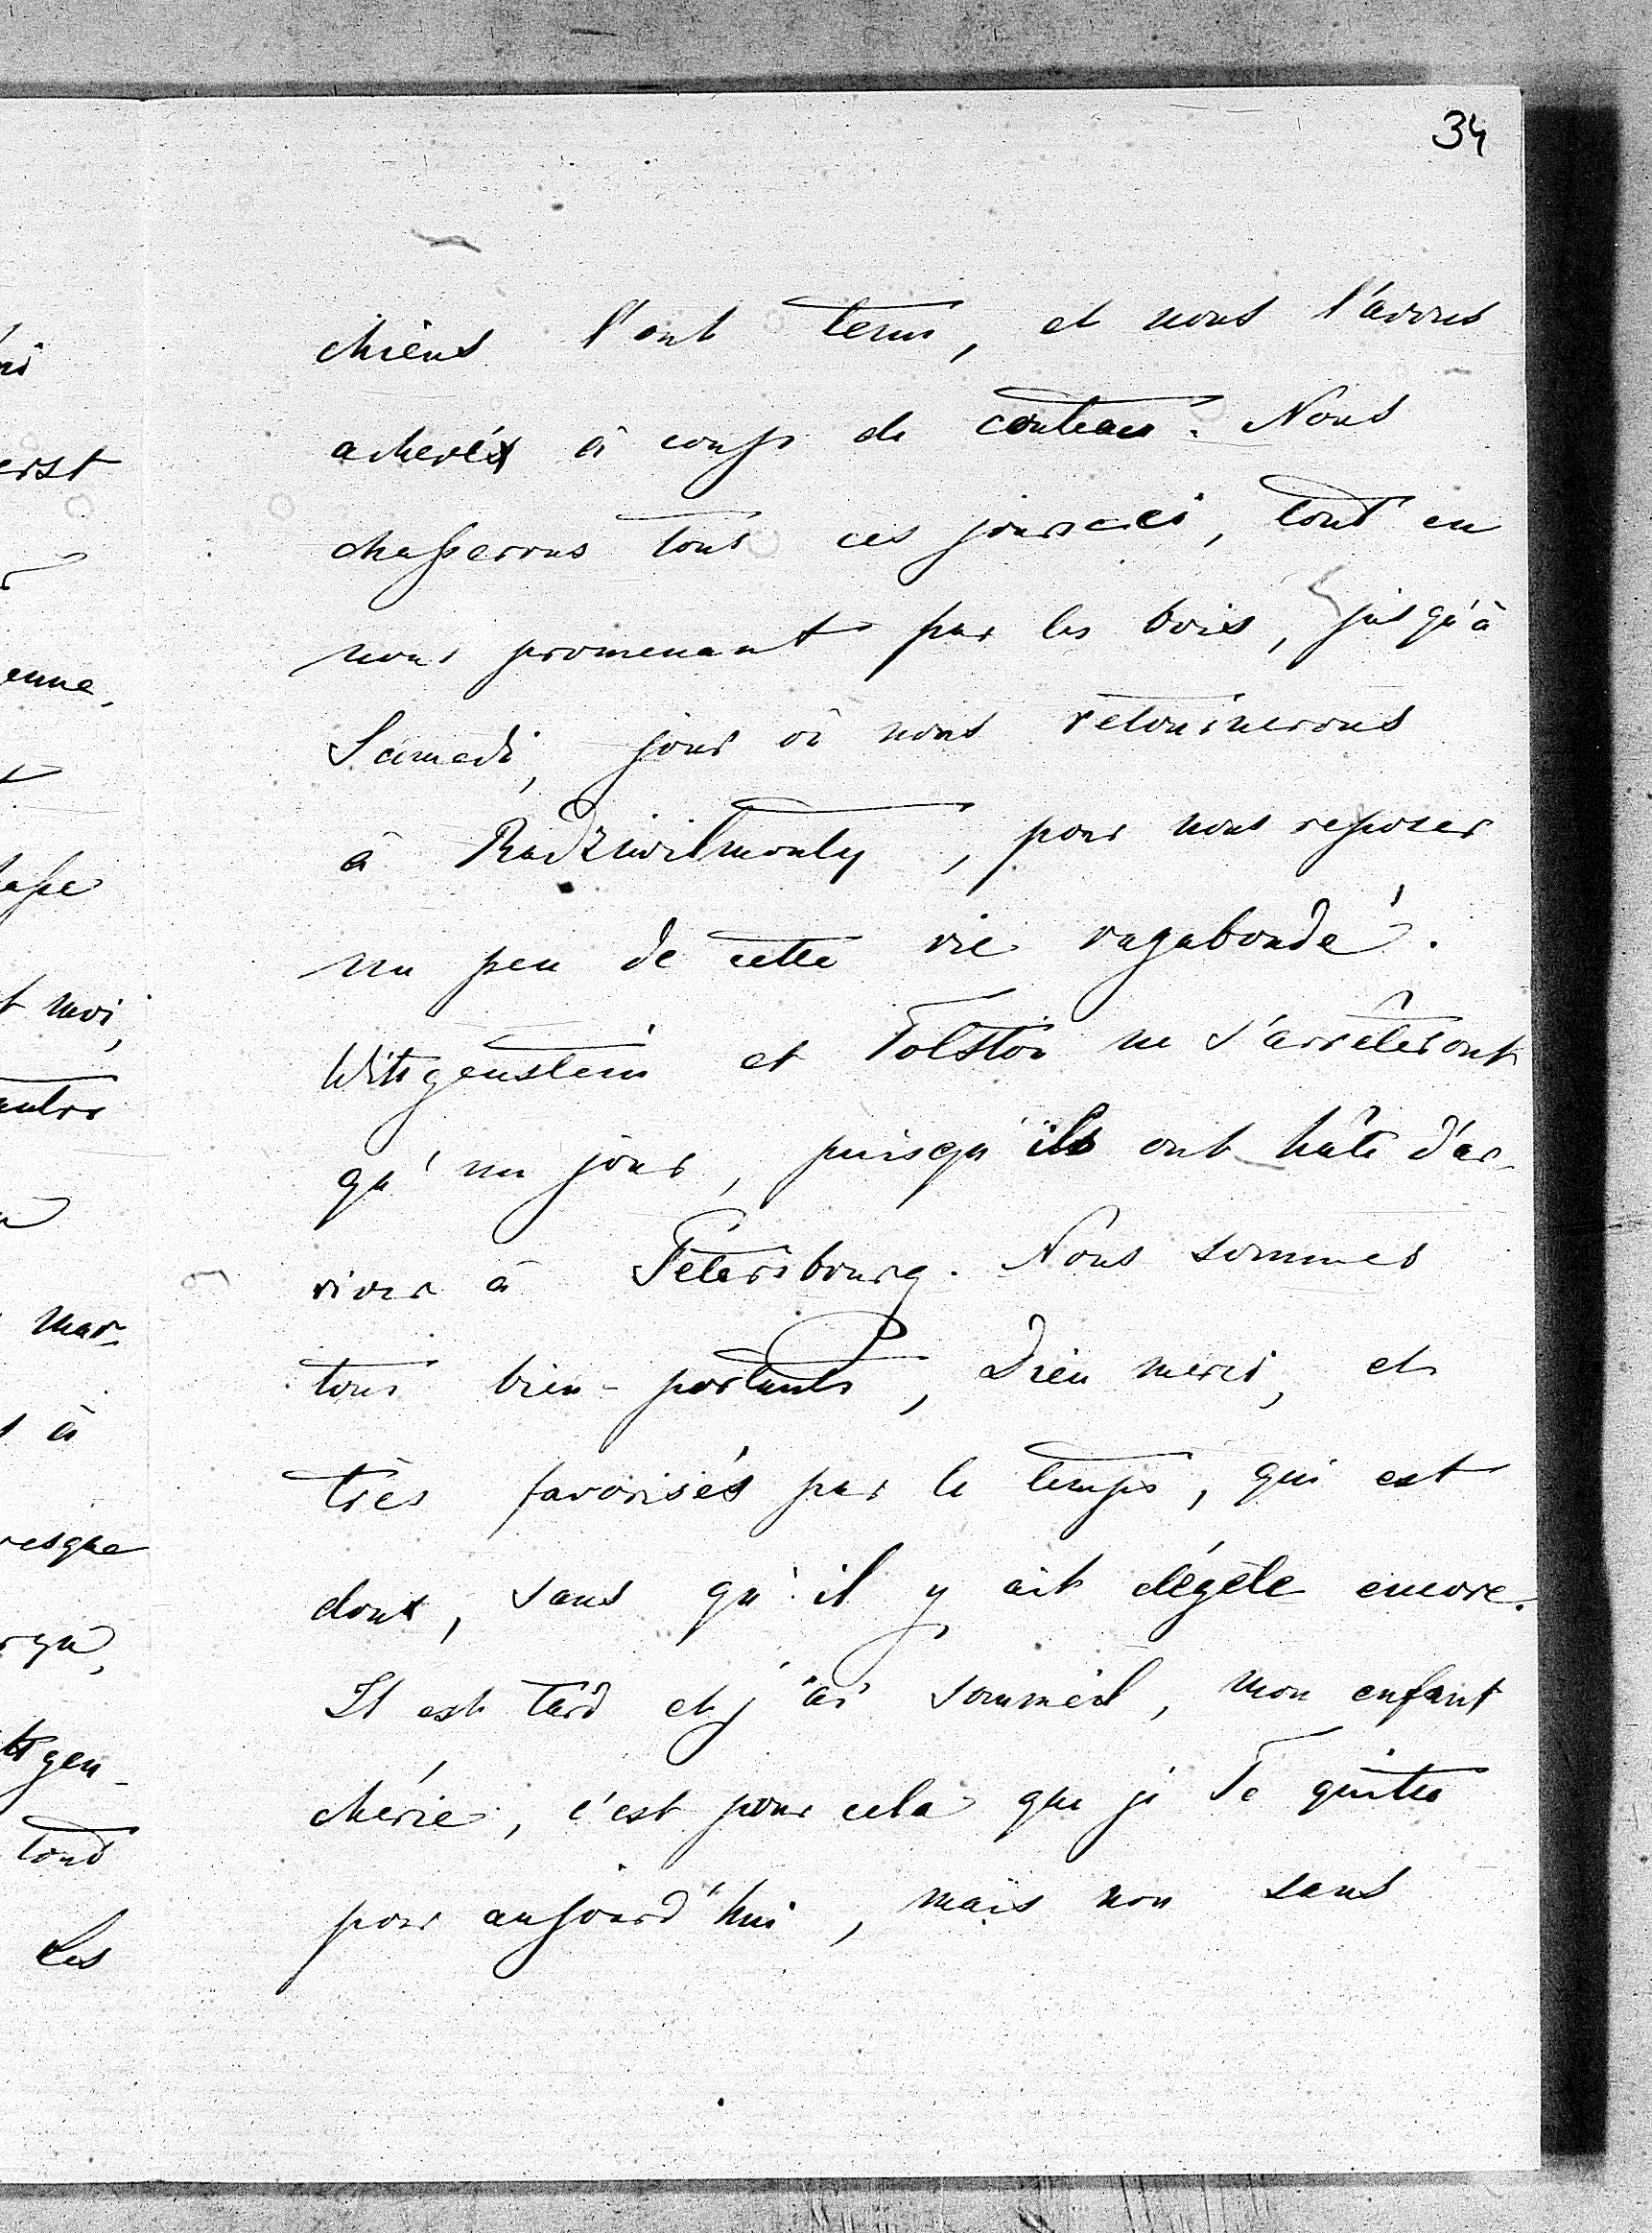 34
chiens l'ont tenu, et nous l'avons
achevé à coups de couteau. Nous
chasserons tous ces jours-ci, tout en
nous promenant par les bois, jusqu'à
Samedi, jour où nous retournerons
à Radziwilmonty, pour nous reposer
un peu de cette vie vagabonde.
Wittgenstein et Tolstoi ne s'arrêteront
qu'un jour, puisqu'ils ont hâte d'ar-
river à Pétersbourg. Nous sommes
tous bien-portants, Dieu merci, et
très favorisés par le temps, qui est
doux, sans qu'il y ait dégèle encore.
Il est tard et j'ai sommeil, mon enfant
chérie, c'est pour cela que je Te quitte
pour aujourd'hui, mais non sans
enne,
moi,
mar-
à
resque
tgen-
tout
les